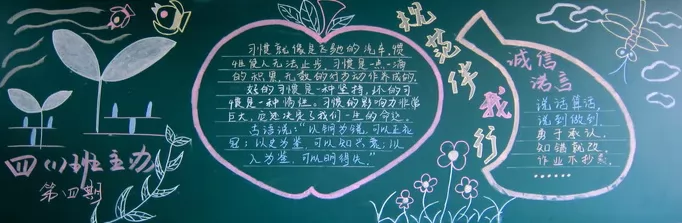 四(1)班主办
第四期
习惯就像是飞驰的汽车,惯
性使人无法止步。习惯是一点一滴
的积累,无数的行为动作养成的。
好的习惯是一种坚持,坏的习
惯是一种惰性。习惯的影响力非常
巨大,它决定了我们一生的命运。
古语说:“以铜为镜,可以正衣
冠;以史为鉴,可以知兴衰;以
人为鉴,可以明得失。”
规范伴我行
诚信
诺言
说话算话,
说到做到,
勇于承认,
知错就改,
作业不抄袭,
......